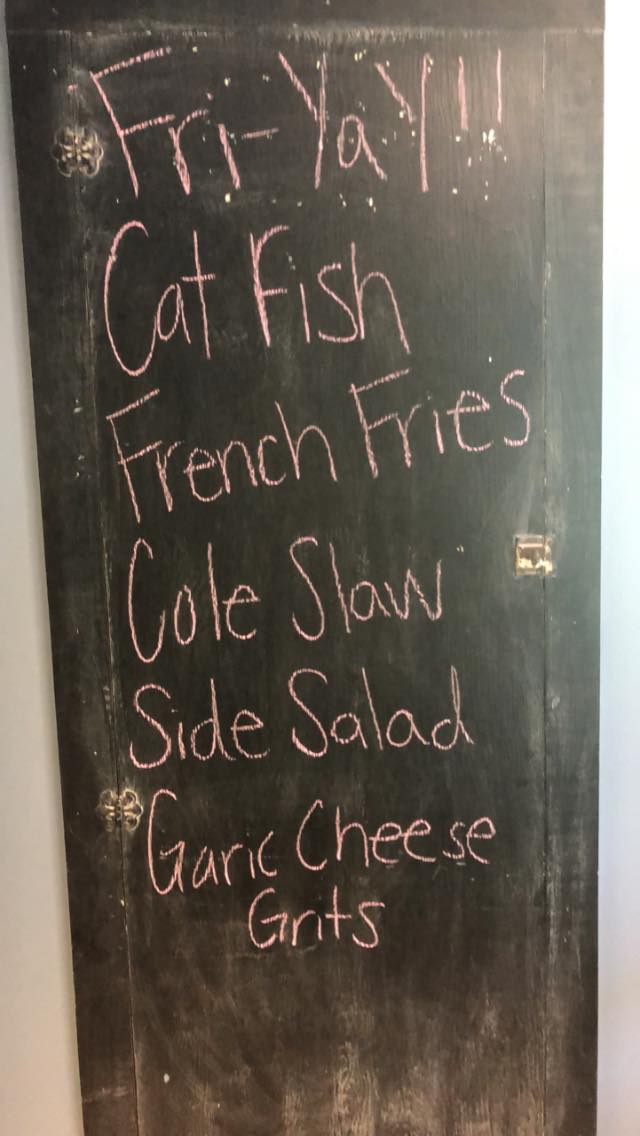 Fri-YaY!!
Cat Fish
French Fries
Cole Slaw
Side Salad
Garic Cheese
Grits